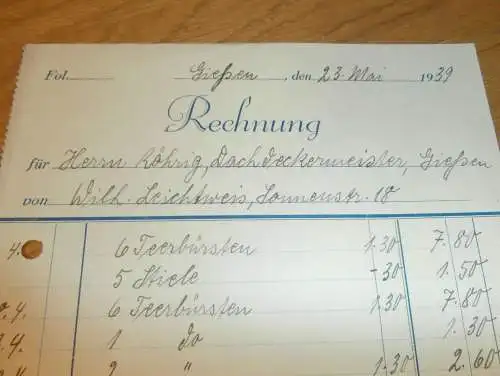 Fol. Gießen, den 23. Mai 1939
Rechnung
für Herrn Röhrig, Dachdeckermeister, Gießen
von Wilh. Leichtweis, Sonnenstr. 18
4. 6 Teerbürsten 1.30 7.80
5 Stiele -30 1.50
.4. 6 Teerbürsten 1.30 7.80
.4. 1 do 1.30
4. 2 " 1.30 2.60